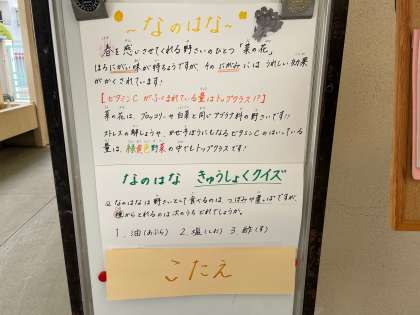 ~なのはな~
春を感じさせてくれる野さいのひとつ「菜の花」
ほろにがい味が特ちょうですが、そのにがみにはうれしい効果
がかくされています!
【ビタミンCがふくまれている量はトップクラス!?】
菜の花は、ブロッコリーや白菜と同じアブラナ科の野さいです!!
ストレスの解しょうや、かぜ予ぼうにもなるビタミンCのはいっている
量は、緑黄色野菜の中でもトップクラスです!
なのはな きゅうしょくクイズ
Q.なのはなは野さいとして食べるのは、つぼみや葉いぱですが、
種からとれるのは次のうちどれでしょうか。
1.油(あぶら) 2.塩(しお) 3.酢(す)
こたえ